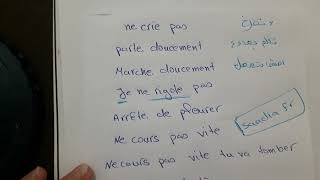 ne crie pas
لا تصرخ
parle doucement
تكلم بهدوء
Marche doucement
امشي بتمهل
Je ne rigole pas
Arrête de pleurer
saadia fr
Ne cours pas vite
Ne cours pas vite tu va tomber